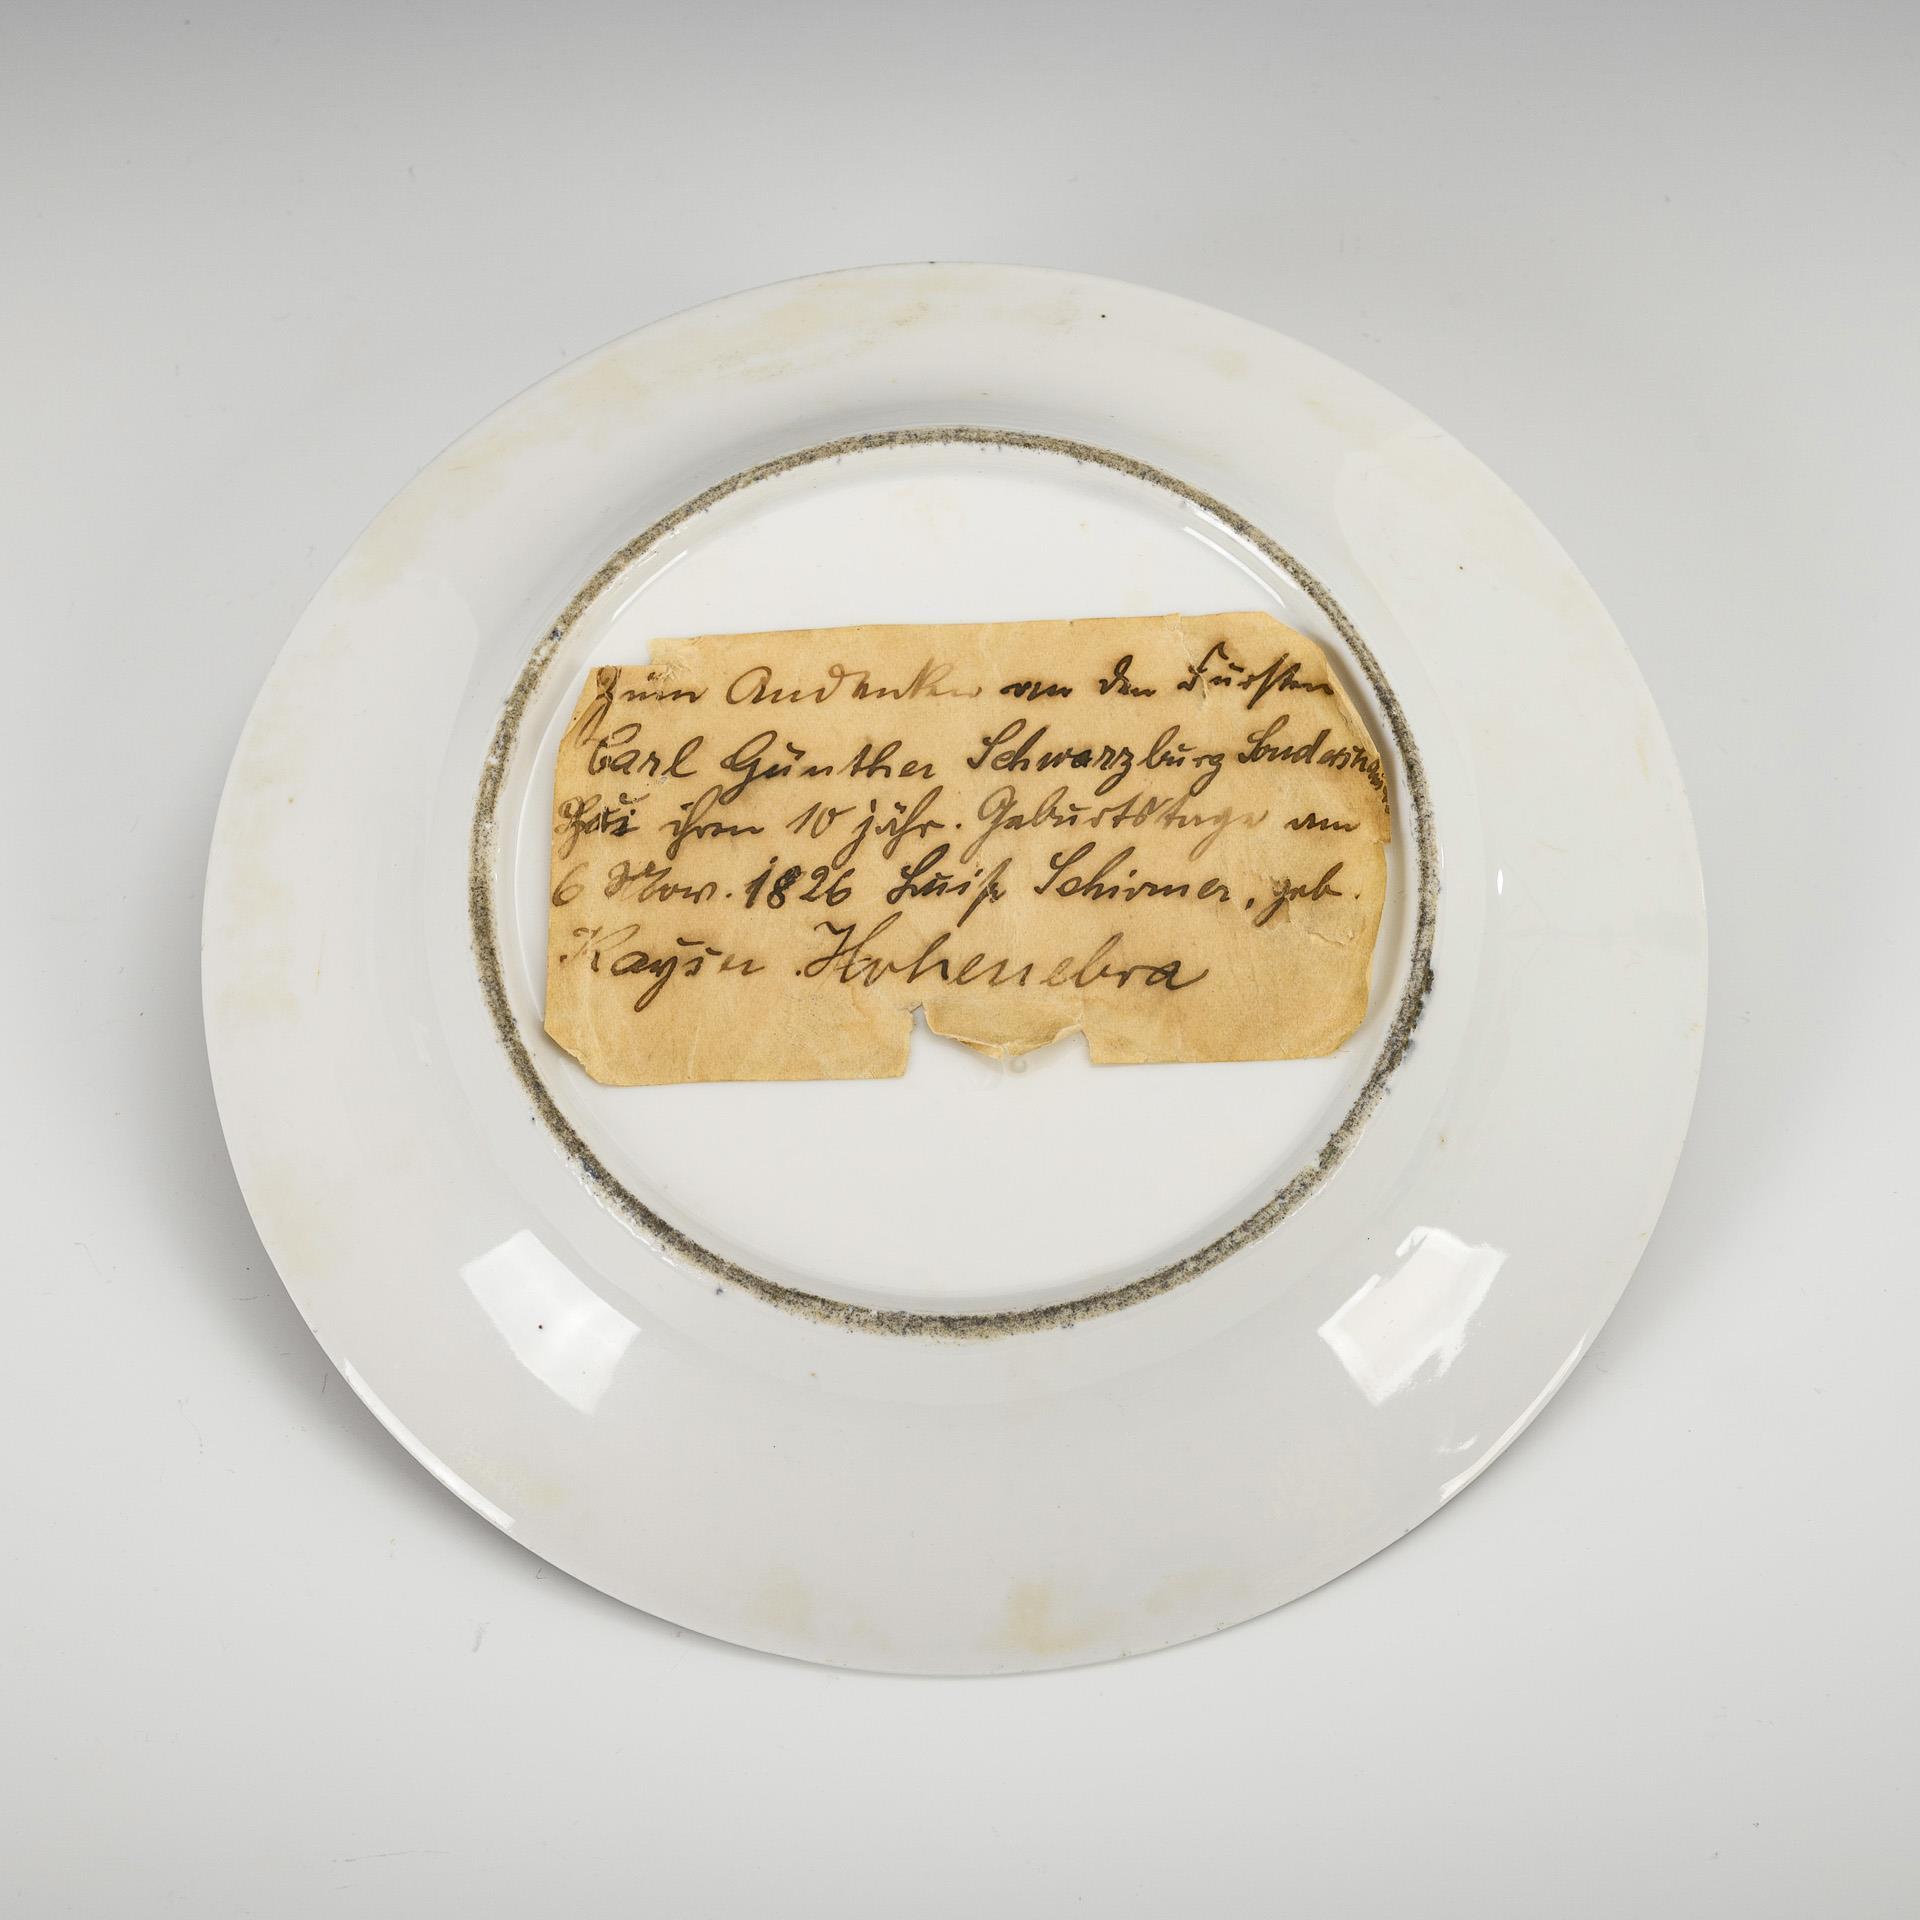 Zum Andenken an den Fürsten
Carl Günther Schwarzburg Sondershausen
ihren 10 jähr. Geburtstage am
6 Nov. 1826 Luise Schirmer, geb.
Kayser Hohenebra